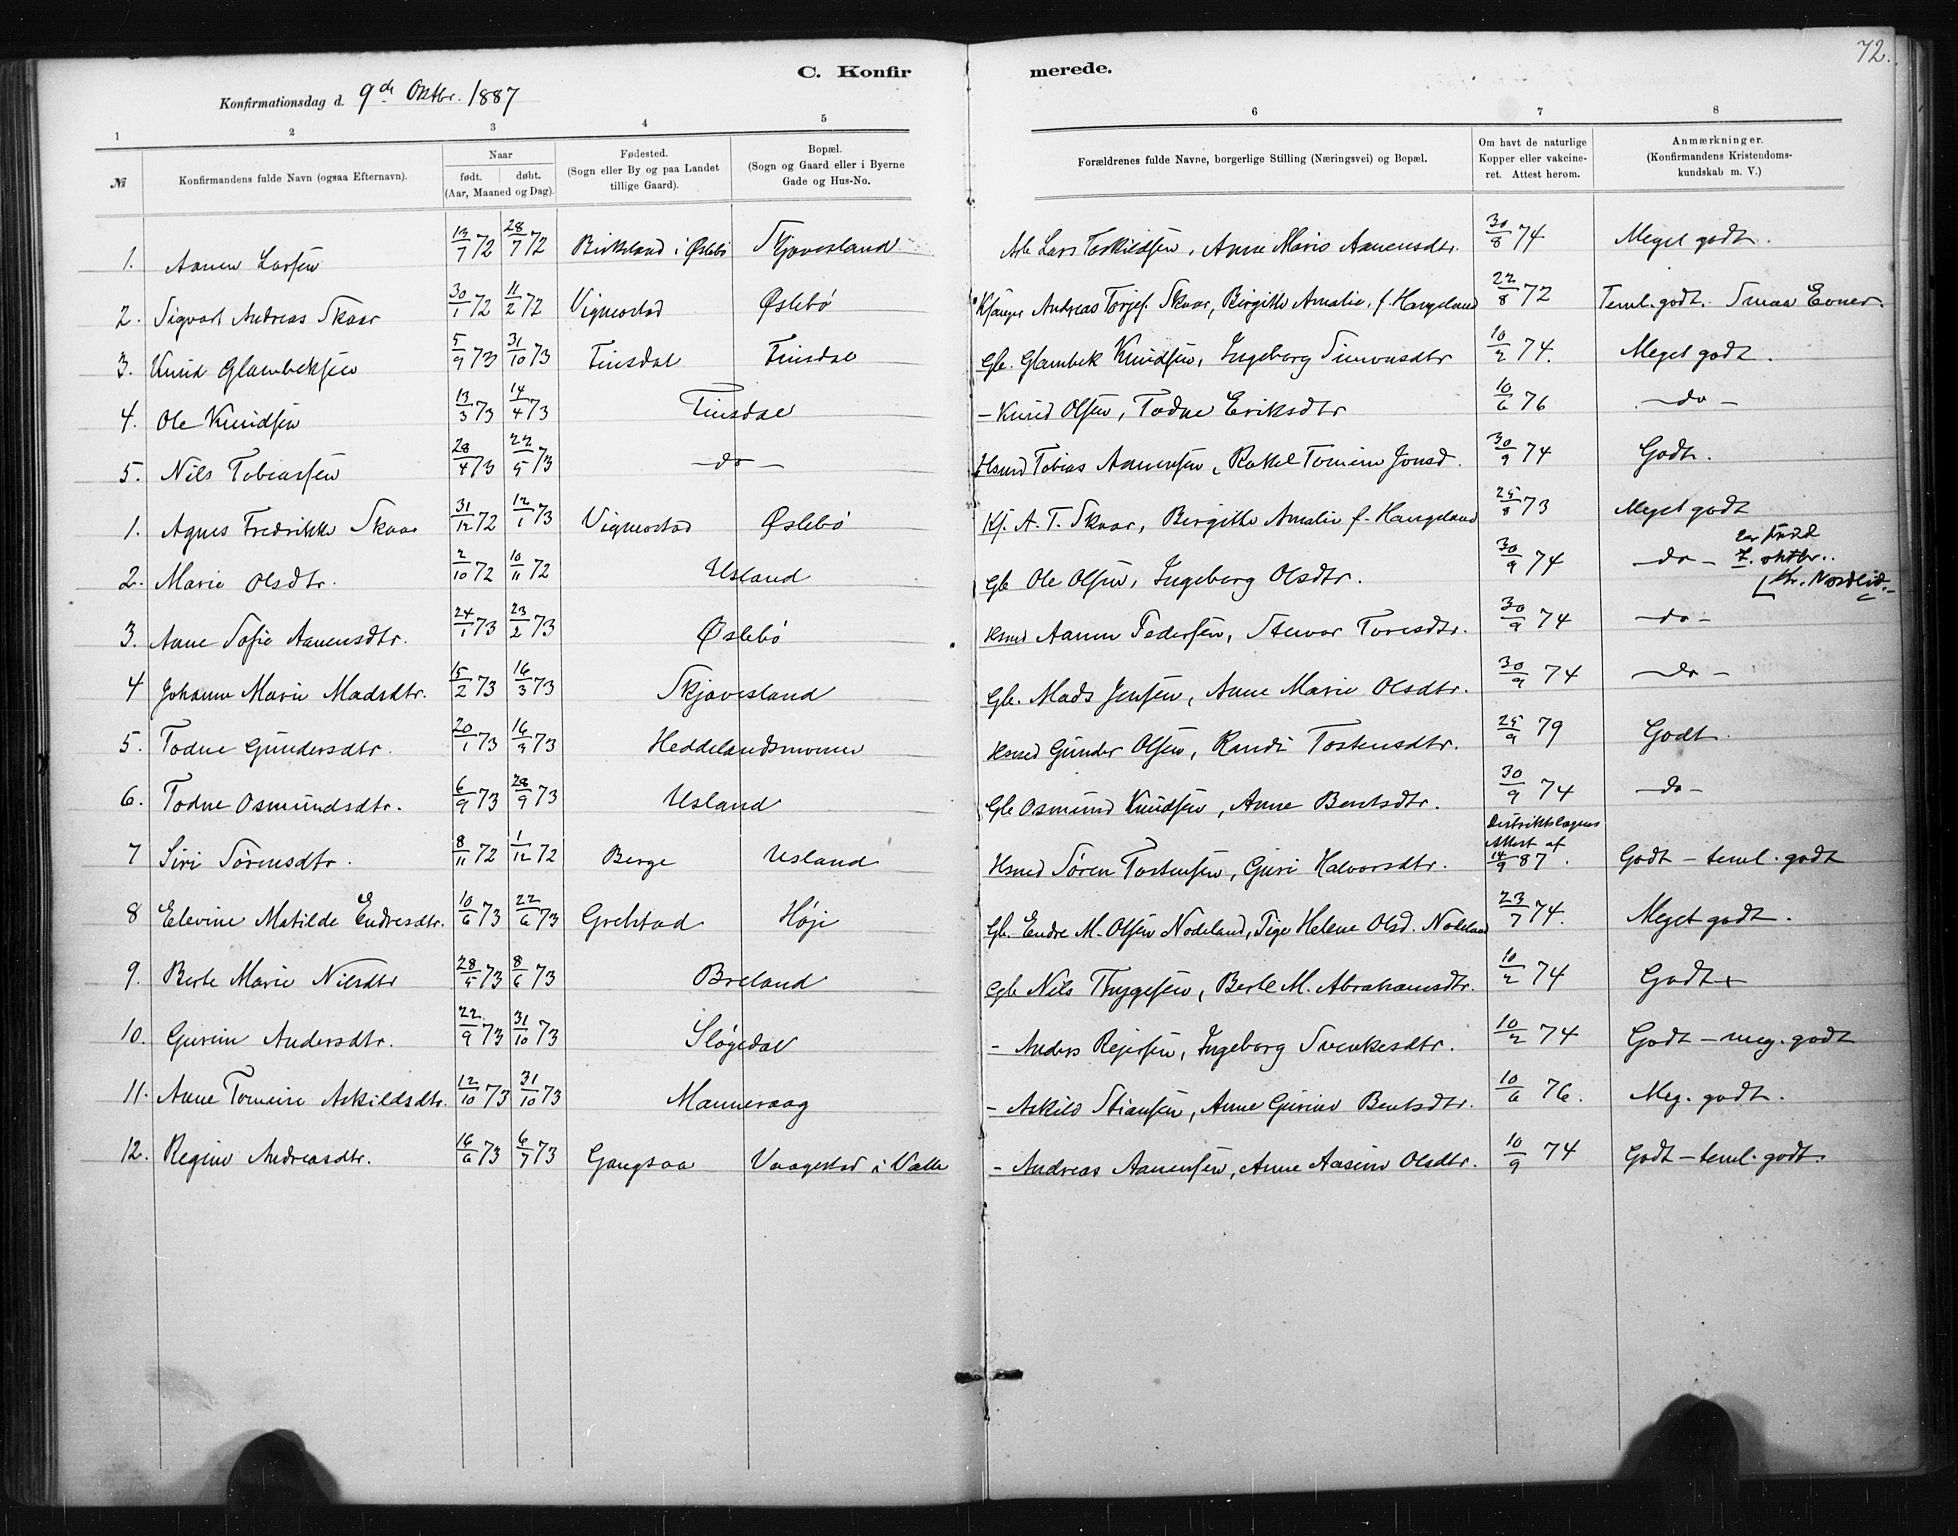 72.
C. Konfirmerede.
Konfirmationsdag d. 9de Oktbr. 1887
1 2 3 4 5 6 7 8
№ Konfirmandens fulde Navn (ogsaa Efternavn). Naar født. døbt. (Aar, Maaned og Dag). Fødested. (Sogn eller By og paa Landet tillige Gaard). Bopæl. (Sogn og Gaard eller i Byerne Gade og Hus-No. Forældrenes fulde Navne, borgerlige Stilling (Næringsvei) og Bopæl. Om havt de naturlige Kopper eller vakcineret. Attest herom. Anmærkninger. (Konfirmandens Kristendomskundskab m. V.)
1. Aanen Larsen 13/7 72 28/7 72 Birkeland i Øslebø Skjævesland Arb Lars Torkildsen, Anne Marie Aanensdtr. 30/8 74 Meget godt.
2. Sigvart Andreas Skaar 30/1 72 11/2 72 Vigmostad Øslebø Ksanger Andreas Torjes. Skaar, Birgitte Amalie, f. Haugeland 22/8 72 Teml. godt. Smaa Evner.
3. Knud Glambeksen 5/9 73 31/10 73 Finsdal Finsdal Gb. Glambek Knudsen, Ingeborg Simonsdtr 10/2 74. Meget godt.
4. Ole Knudsen 13/3 73 14/4 73 Finsdal - Knud Olsen, Todne Eriksdtr 10/6 76 - do -
5. Nils Tobiassen 28/4 73 22/5 73 - do - Hsmd Tobias Aanensen, Rakel Tomine Jonsd. 30/9 74 Godt.
1. Agnes Fredrikke Skaar 31/12 72 12/1 73 Vigmostad Øslebø Ks. A. T. Skaar, Birgitte Amalie f. Haugeland 25/8 73 Meget godt
2. Marie Olsdtr. 2/10 72 10/11 72 Usland Gb Ole Olsen, Ingeborg Olsdtr. 30/9 74 - do - er født
7. oktbr..
Kr. Nordlid.
3. Anne Sofie Aanensdtr. 24/1 73 23/2 73 Øslebø Hsmd Aanen Pedersen, Stenvor Toresdtr. 30/9 74 - do -
4 Johanne Marie Madsdtr. 15/2 73 16/3 73 Skjævesland Gb. Mads Jensen, Anne Marie Olsdtr. 30/9 74 - do -
5. Todne Gundersdtr. 20/1 73 16/3 73 Heddelandsmoen Hsmd Gunder Olsen, Randi Tostensdtr. 25/9 79 Godt.
6. Todne Osmundsdtr. 6/9 73 28/9 73 Usland Gb Osmund Knudsen, Anne Bentsdtr. 30/9 74 - do -
7 Siri Sørensdtr. 8/11 72 1/12 72 Berge Usland Hsmd Søren Tostensen, Guri Halvorsdtr. Distriktslægens Attest af 14/9 87. Godt - teml. godt
8 Elevine Matilde Endresdtr. 10/6 73 22/6 73 Grelstad Høje Gb. Endre M. Olsen Nodeland, Tige Helene Olsd. Nodeland 23/7 74. Meget godt.
9. Berte Marie Nilsdtr 28/5 73 8/6 73 Breland Gb Nils Thygesen, Berte M. Abrahamsdtr. 10/2 74 Godt +
10. Gurine Andersdtr. 22/9 73 31/10 73 Sløgedal - Anders Rejersen, Ingeborg Svenkesdtr. 10/2 74 Godt - meg. godt
11. Anne Tomine Askildsdtr. 12/10 73 31/10 73 Mannevaag - Askild Stiansen, Anne Gurine Bentsdtr. 10/6 76. Meg. godt.
12. Regine Andreasdtr. 16/6 73 6/7 73 Gangsaa Vaagestad i Valle - Andreas Aanensen, Anne Aasine Olsdtr. 10/9 74 Godt - teml. godt.